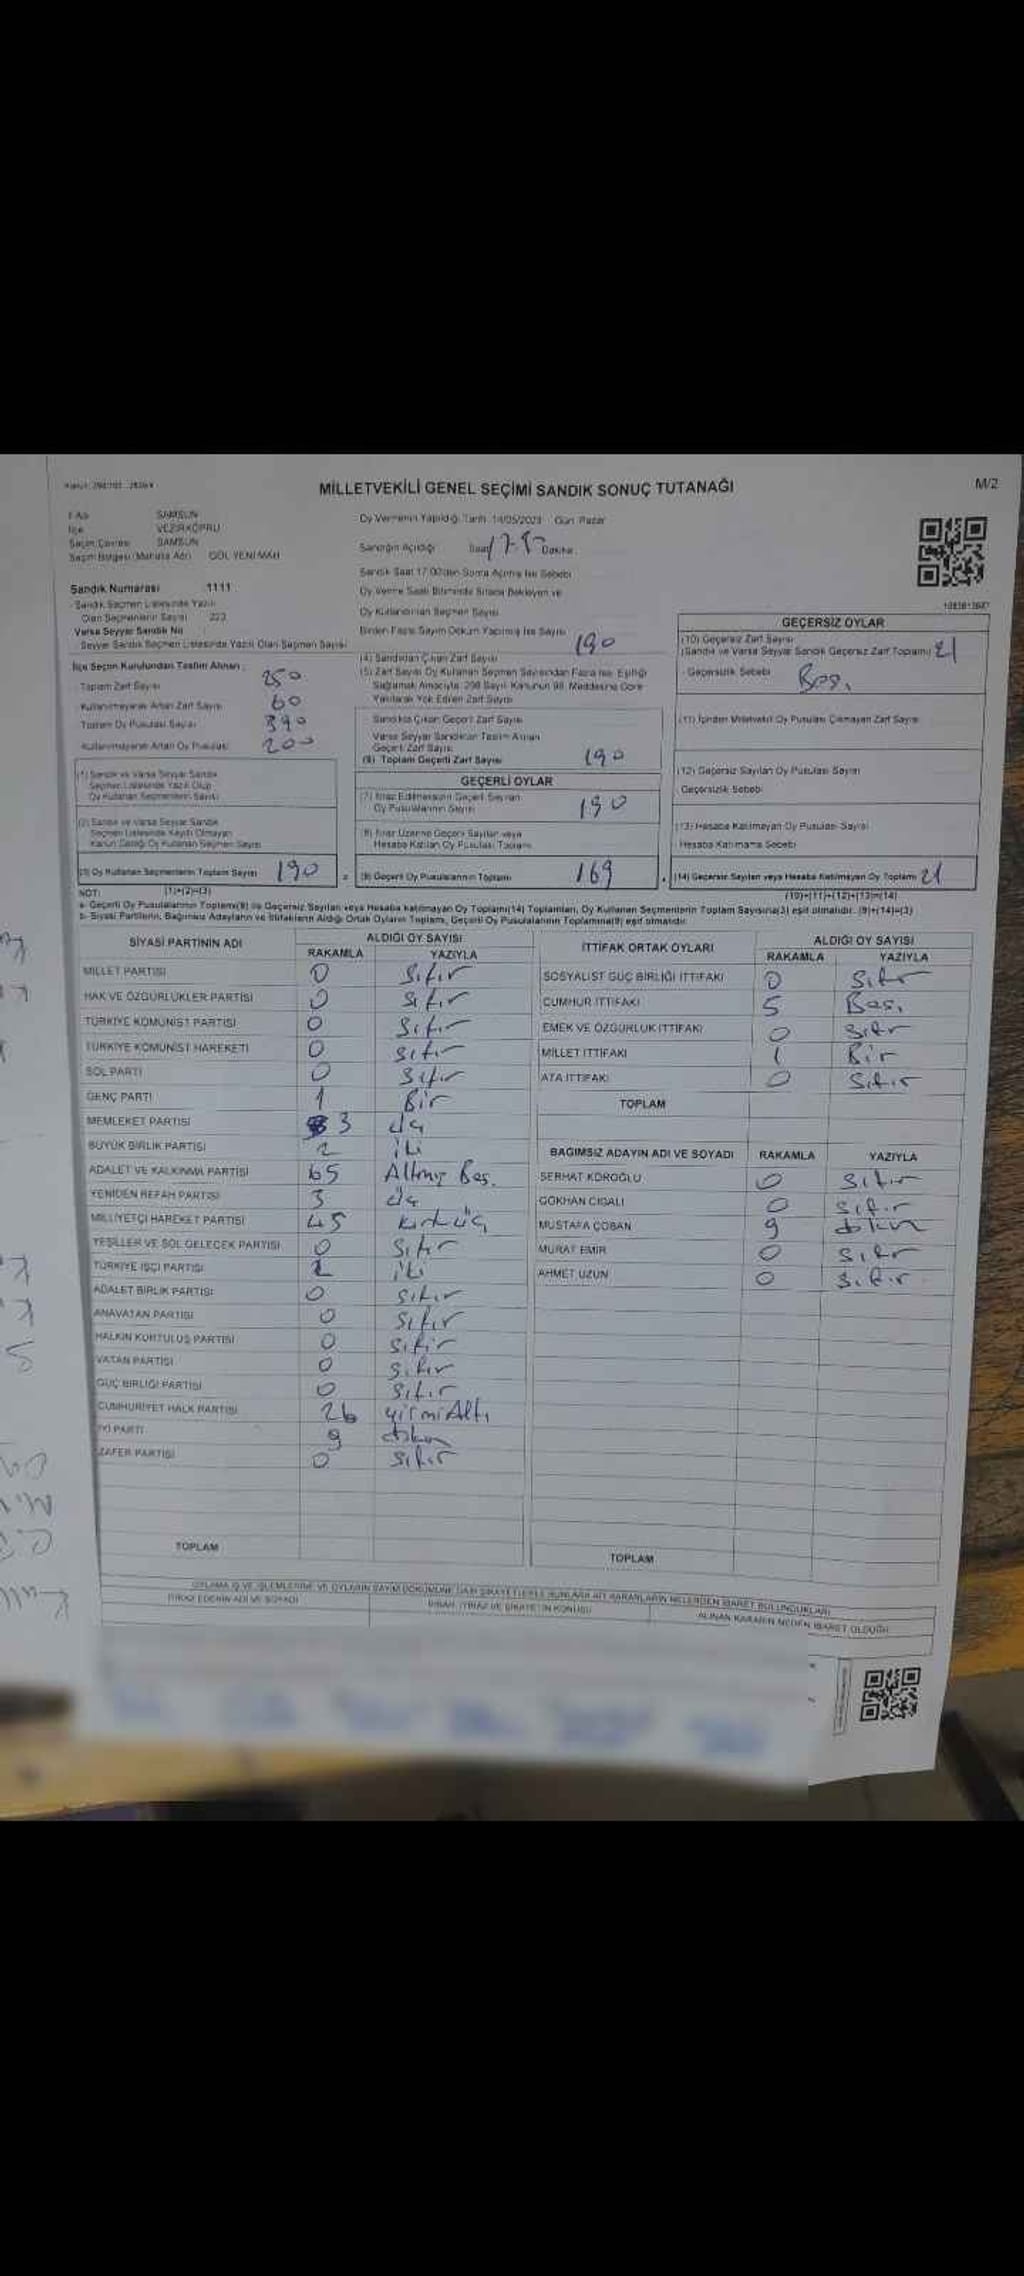 MİLLETVEKİLİ GENEL SEÇİMİ SANDIK SONUÇ TUTANAĞI
M/2
SAMSUN
VEZİRKÖPRÜ
SAMSUN
Seçim Bölgesi (Mahalle Adı) GÖL YENİ MAH
Oy Vermenin Yapıldığı Tarih 14/05/2023 Gün Pazar
Sandığın Açıldığı Saat Dakika
Sandık Saat 17:00'den Sonra Açılmış İse Sebebi
Oy Verme Saati Bitiminde Sırada Bekleyen ve
Oy Kullandırılan Seçmen Sayısı
Birden Fazla Sayım Döküm Yapılmış İse Sayısı
Sandık Numarası 1111
Sandık Seçmen Listesinde Yazılı
Olan Seçmenlerin Sayısı 223
Varsa Seyyar Sandık No
Seyyar Sandık Seçmen Listesinde Yazılı Olan Seçmen Sayısı
İlçe Seçim Kurulundan Teslim Alınan
Toplam Zarf Sayısı 250
Kullanılmayarak Artan Zarf Sayısı 60
Toplam Oy Pusulası Sayısı 390
Kullanılmayarak Artan Oy Pusulası 200
(1) Sandık ve Varsa Seyyar Sandık
Seçmen Listesinde Yazılı Olup
Oy Kullanan Seçmenlerin Sayısı
(2) Sandık ve Varsa Seyyar Sandık
Seçmen Listesinde Kayıtlı Olmayan
Kanun Gereği Oy Kullanan Seçmen Sayısı
(3) Oy Kullanan Seçmenlerin Toplam Sayısı 190
(1)+(2)=(3)
(4) Sandıktan Çıkan Zarf Sayısı 190
(5) Zarf Sayısı Oy Kullanan Seçmen Sayısından Fazla İse, Eşitliği
Sağlamak Amacıyla, 298 Sayılı Kanunun 98. Maddesine Göre
Yakılarak Yok Edilen Zarf Sayısı
Sandıkta Çıkan Geçerli Zarf Sayısı
Varsa Seyyar Sandıktan Teslim Alınan
Geçerli Zarf Sayısı
(6) Toplam Geçerli Zarf Sayısı 190
GEÇERLİ OYLAR
(7) İtiraz Edilmeksizin Geçerli Sayılan
Oy Pusulalarının Sayısı 190
(8) İtiraz Üzerine Geçerli Sayılan veya
Hesaba Katılan Oy Pusulası Toplamı
(9) Geçerli Oy Pusulalarının Toplamı 169
GEÇERSİZ OYLAR
(10) Geçersiz Zarf Sayısı
(Sandık ve Varsa Seyyar Sandık Geçersiz Zarf Toplamı) 21
Geçersizlik Sebebi Boş.
(11) İçinden Milletvekili Oy Pusulası Çıkmayan Zarf Sayısı
(12) Geçersiz Sayılan Oy Pusulası Sayısı
Geçersizlik Sebebi
(13) Hesaba Katılmayan Oy Pusulası Sayısı
Hesaba Katılmama Sebebi
(14) Geçersiz Sayılan veya Hesaba Katılmayan Oy Toplamı 21
(10)+(11)+(12)+(13)=(14)
NOT:
a- Geçerli Oy Pusulalarının Toplamı(9) ile Geçersiz Sayılan veya Hesaba Katılmayan Oy Toplamı(14) Toplamları, Oy Kullanan Seçmenlerin Toplam Sayısına(3) eşit olmalıdır. (9)+(14)=(3)
b- Siyasi Partilerin, Bağımsız Adayların ve İttifakların Aldığı Ortak Oyların Toplamı, Geçerli Oy Pusulalarının Toplamına(9) eşit olmalıdır.
SİYASİ PARTİNİN ADI ALDIĞI OY SAYISI
RAKAMLA YAZIYLA
MİLLET PARTİSİ 0 Sıfır
HAK VE ÖZGÜRLÜKLER PARTİSİ 0 Sıfır
TÜRKİYE KOMÜNİST PARTİSİ 0 Sıfır
TÜRKİYE KOMÜNİST HAREKETİ 0 Sıfır
SOL PARTİ 0 Sıfır
GENÇ PARTİ 1 Bir
MEMLEKET PARTİSİ 3 üç
BÜYÜK BİRLİK PARTİSİ 2 iki
ADALET VE KALKINMA PARTİSİ 65 Altmış Beş.
YENİDEN REFAH PARTİSİ 3 üç
MİLLİYETÇİ HAREKET PARTİSİ 43 kırküç
YEŞİLLER VE SOL GELECEK PARTİSİ 0 Sıfır
TÜRKİYE İŞÇİ PARTİSİ 2 iki
ADALET BİRLİK PARTİSİ 0 Sıfır
ANAVATAN PARTİSİ 0 Sıfır
HALKIN KURTULUŞ PARTİSİ 0 Sıfır
VATAN PARTİSİ 0 Sıfır
GÜÇ BİRLİĞİ PARTİSİ 0 Sıfır
CUMHURİYET HALK PARTİSİ 26 yirmi Altı
İYİ PARTİ 9 dokuz
ZAFER PARTİSİ 0 Sıfır
TOPLAM
İTTİFAK ORTAK OYLARI ALDIĞI OY SAYISI
RAKAMLA YAZIYLA
SOSYALİST GÜÇ BİRLİĞİ İTTİFAKI 0 Sıfır
CUMHUR İTTİFAKI 5 Beş.
EMEK VE ÖZGÜRLÜK İTTİFAKI 0 Sıfır
MİLLET İTTİFAKI 1 Bir
ATA İTTİFAKI 0 Sıfır
TOPLAM
BAĞIMSIZ ADAYIN ADI VE SOYADI RAKAMLA YAZIYLA
SERHAT KÖROĞLU 0 Sıfır
GÖKHAN CIGALI 0 Sıfır
MUSTAFA ÇOBAN 9 dokuz
MURAT EMİR 0 Sıfır
AHMET UZUN 0 Sıfır
TOPLAM
İTİRAZ EDENİN ADI VE SOYADI
ALINAN KARARIN NEDEN İBARET OLDUĞU